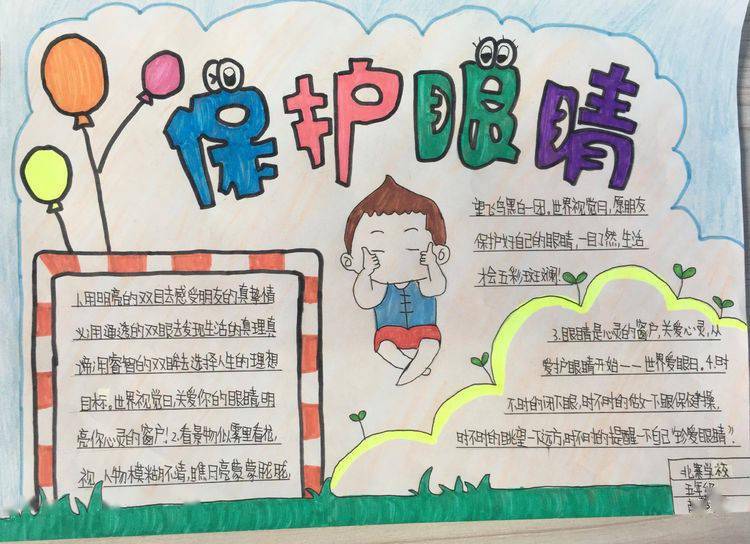 保护眼睛
1.用明亮的双目去感受朋友的真挚情
义;用通透的双眼去发现生活的真理真
谛;用睿智的双眸去选择人生的理想
目标。世界视觉日,关爱你的眼睛,明
亮你心灵的窗户!2.看景物似雾里看花,
视人物模糊不清,瞧月亮蒙蒙胧胧,
望飞鸟黑白一团,世界视觉日,愿朋友
保护好自己的眼睛,一目了然,生活
才会五彩斑斓!
3.眼睛是心灵的窗户,关爱心灵,从
爱护眼睛开始——世界爱眼日。4.时
不时的闭下眼,时不时的做一下眼保健操,
时不时的眺望一下远方,时不时的提醒一下自己“珍爱眼睛”.
北寨学校
五年级